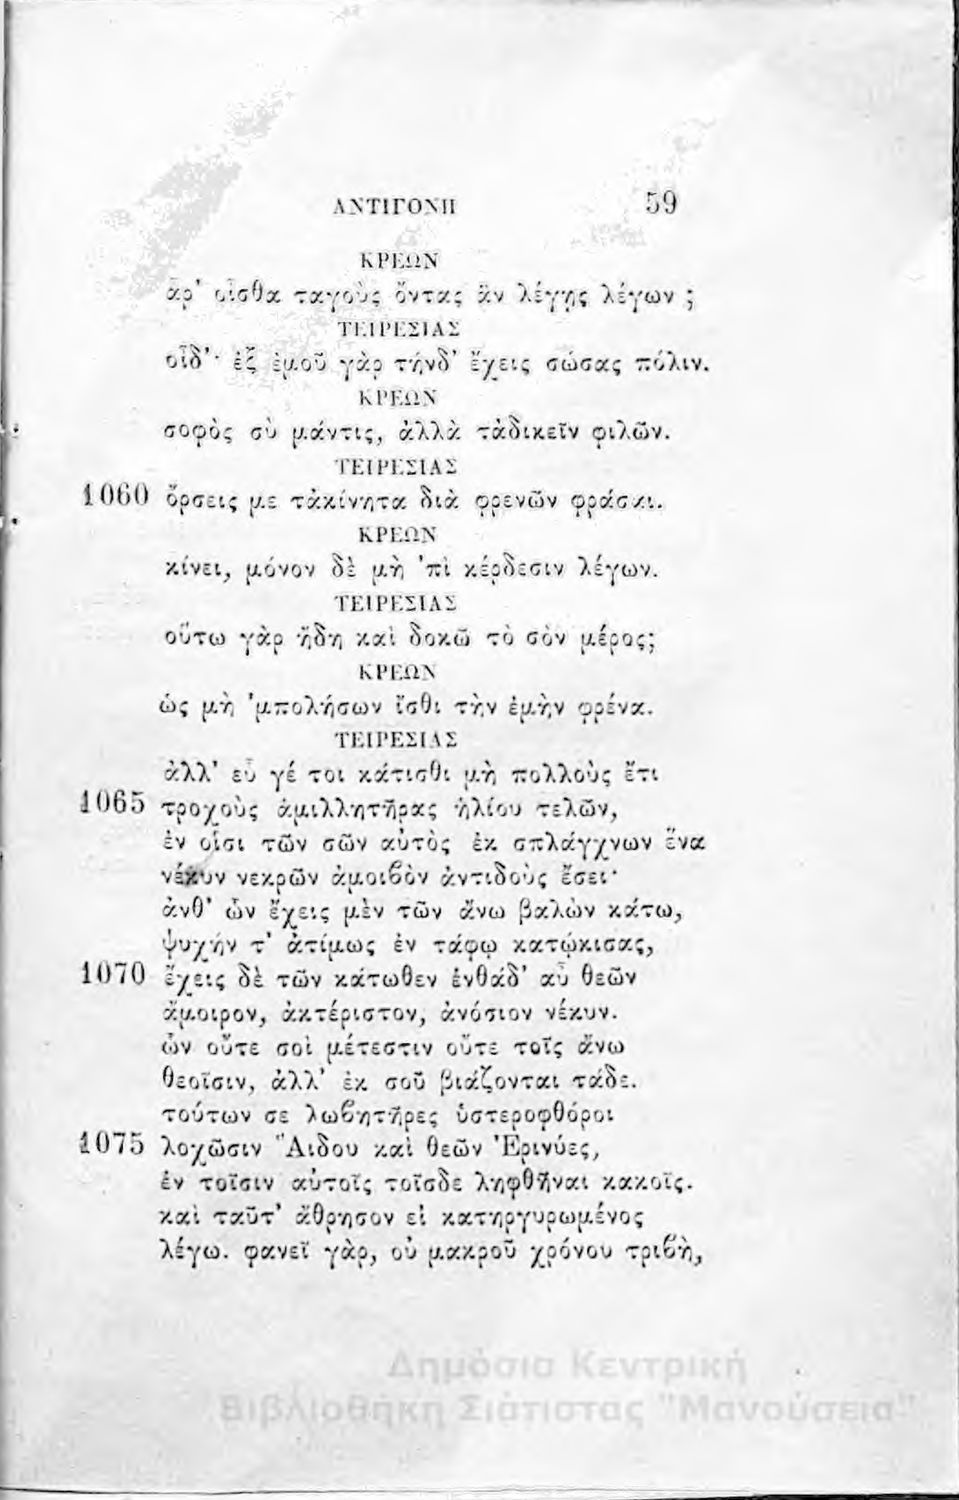 ΑΝΤΙΓΟΝΗ 59
ΚΡΕΩΝ
ἆρ’ οἶσθα ταγοὺς ὄντας ἂν λέγῃς λέγων ;
ΤΕΙΡΕΣΙΑΣ
οἶδ’· ἐξ ἐμοῦ γὰρ τήνδ’ ἔχεις σώσας πόλιν.
ΚΡΕΩΝ
σοφὸς σὺ μάντις, ἀλλὰ τἀδικεῖν φιλῶν.
ΤΕΙΡΕΣΙΑΣ
1060 ὄρσεις με τἀκίνητα διὰ φρενῶν φράσαι.
ΚΡΕΩΝ
κίνει, μόνον δὲ μὴ ’πὶ κέρδεσιν λέγων.
ΤΕΙΡΕΣΙΑΣ
οὕτω γὰρ ἤδη καὶ δοκῶ τὸ σὸν μέρος;
ΚΡΕΩΝ
ὡς μὴ ’μπολήσων ἴσθι τὴν ἐμὴν φρένα.
ΤΕΙΡΕΣΙΑΣ
ἀλλ’ εὖ γέ τοι κάτισθι μὴ πολλοὺς ἔτι
1065 τροχοὺς ἁμιλλητῆρας ἡλίου τελῶν,
ἐν οἷσι τῶν σῶν αὐτὸς ἐκ σπλάγχνων ἕνα
νέκυν νεκρῶν ἀμοιϐὸν ἀντιδοὺς ἔσει·
ἀνθ’ ὧν ἔχεις μὲν τῶν ἄνω βαλὼν κάτω,
ψυχήν τ’ ἀτίμως ἐν τάφῳ κατῴκισας,
1070 ἔχεις δὲ τῶν κάτωθεν ἐνθάδ’ αὖ θεῶν
ἄμοιρον, ἀκτέριστον, ἀνόσιον νέκυν.
ὧν οὔτε σοὶ μέτεστιν οὔτε τοῖς ἄνω
θεοῖσιν, ἀλλ’ ἐκ σοῦ βιάζονται τάδε.
τούτων σε λωϐητῆρες ὑστεροφθόροι
1075 λοχῶσιν Ἅιδου καὶ θεῶν Ἐρινύες,
ἐν τοῖσιν αὐτοῖς τοῖσδε ληφθῆναι κακοῖς.
καὶ ταῦτ’ ἄθρησον εἰ κατηργυρωμένος
λέγω. φανεῖ γὰρ, οὐ μακροῦ χρόνου τριϐὴ,
Δημόσια Κεντρική
Βιβλιοθήκη Σιάτιστας "Μανούσεια"